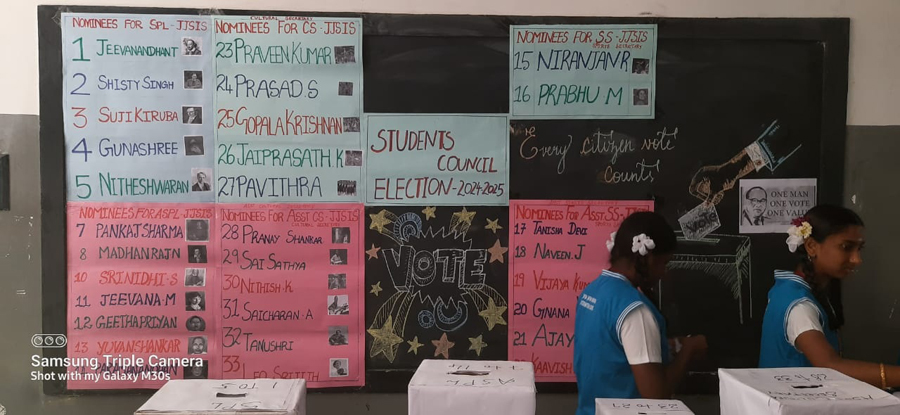 NOMINEES FOR SPL-JJSIS
1 JEEVANANDHANT
2 SHISTY SINGH
3 SUJI KIRUBA
4 GUNASHREE
5 NITHESHWARAN
NOMINEES FOR ASPL-JJSIS
7 PANKAJ SHARMA
8 MADHAN RAJ N
10 SRINIDHI-S
11 JEEVANA-M
12 GEETHAPRIYAN
13 YUVANSHANKAR
CULTURAL SECRETARY
NOMINEES FOR CS-JJSIS
23 PRAVEEN KUMAR
24 PRASAD.S
25 GOPALA KRISHNAN
26 JAIPRASATH K
27 PAVITHRA
NOMINEES FOR ASST CS-JJSIS
CULTURAL SECRETARY
28 PRANAY SHANKAR
29 SAI SATHYA
30 NITHISH-K
31 SAICHARAN-A
32 TANUSHRI
33 LEO SRIJITH
STUDENTS
COUNCIL
ELECTION-2024-2025
VOTE
NOMINEES FOR SS-JJSIS
SPORTS SECRETARY
15 NIRANJAN R
16 PRABHU M
Every citizen vote
counts
VOTE
ONE MAN
ONE VOTE
ONE VALUE
NOMINEES FOR ASST.SS-JJSIS
17 TANISHA DEVI
18 NAVEEN.J
19 VIJAYA
20 GNANA
21 AJAY
KAAVISH
1 TO 5
SPL
ASPL
Samsung Triple Camera
Shot with my Galaxy M30s